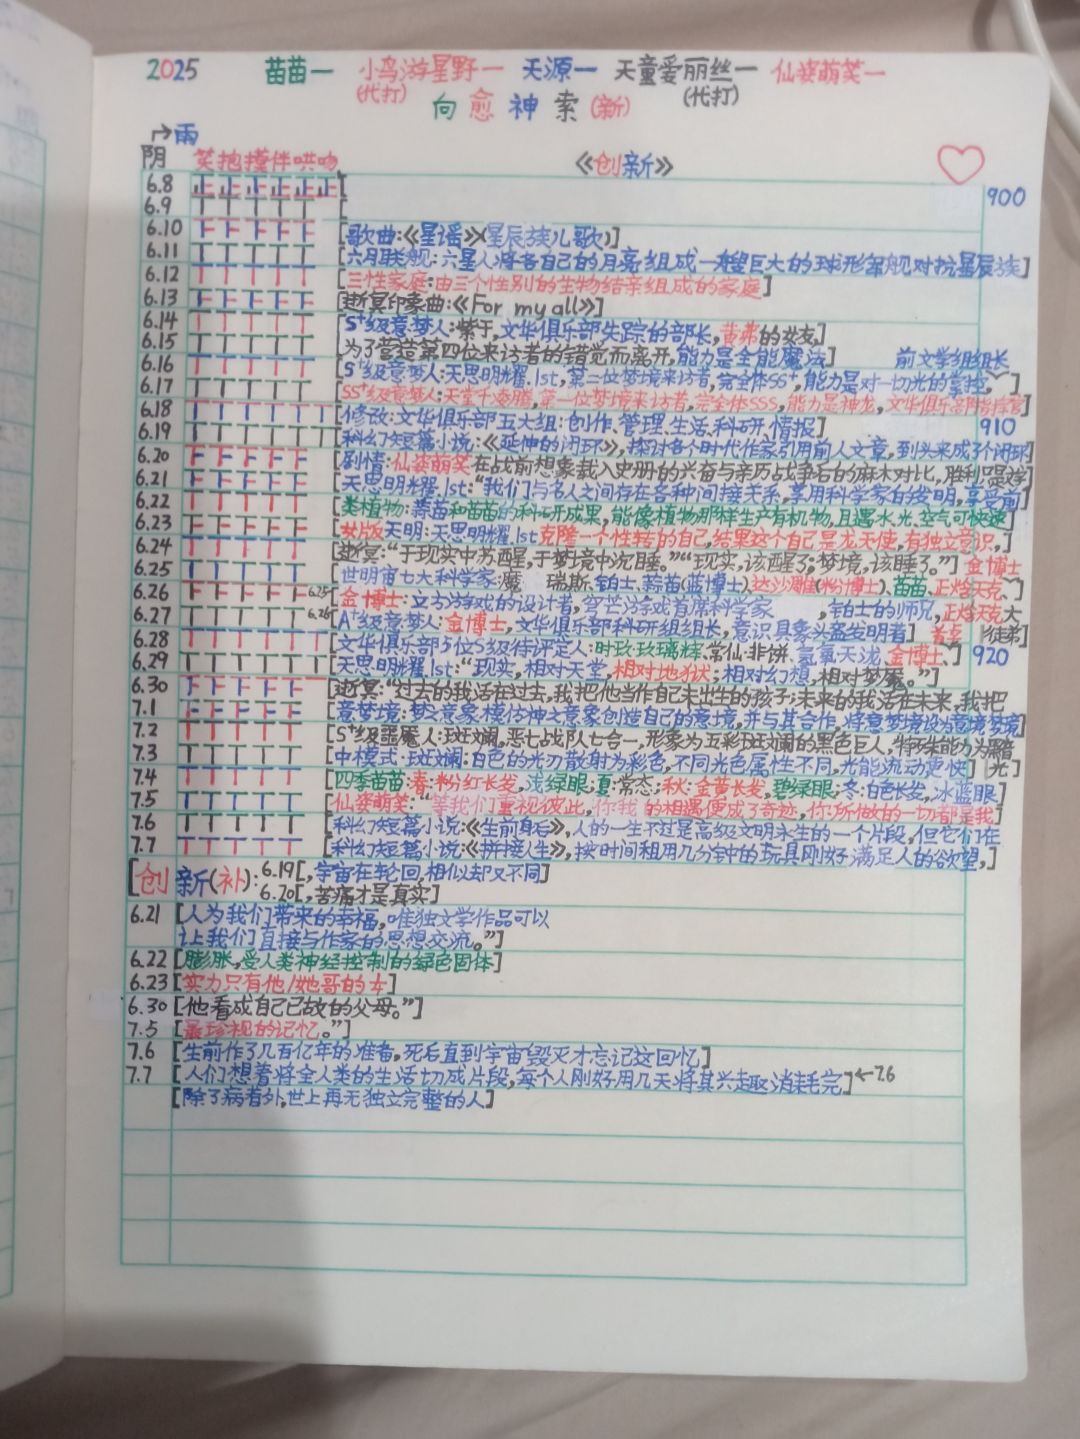 2025 苗苗一 小鸟游星野一 天源一 天童爱丽丝一 仙姿萌笑一
(代打) (代打)
向愈神索(新)
→雨
阴 笑抱摸伴哄吻 《创新》
6.8 正正正正正正[ 900
6.9 [
6.10 [歌曲:《星谣》(星辰族儿歌)]
6.11 [六月联舰:六星人将各自己的月亮组成一艘巨大的球形军舰对抗星辰族]
6.12 [三性家庭:由三个性别的生物结亲组成的家庭]
6.13 [逝冥印象曲:《For my all》]
6.14 [S⁺级意梦人:紫于,文华俱乐部失踪的部长,黄弗的女友,
6.15 为了营造第四位来访者的错觉而离开,能力是全能魔法] 前文学组组长
6.16 [S⁺级意梦人:天思明耀.1st,第二位梦境来访者,完全体SS⁺,能力是对一切光的掌控,]
6.17 [SS⁺级意梦人:天堂千凌腾,第一位梦境来访者,完全体SSS,能力是神龙,文华俱乐部
6.18 [修改:文华俱乐部五大组:创作.管理.生活.科研.情报] 910
6.19 [科幻短篇小说:《延伸的闭环》,探讨各个时代作家引用前人文章,到头来成了个闭环]
6.20 [剧情:仙姿萌笑在战前想象载入史册的兴奋与亲历战争后的麻木对比,胜利只是文学]
6.21 [天思明耀.1st:“我们与名人之间存在各种间接关系,享用科学家的发明,享受前]
6.22 [类植物:蒜苗和苗苗的科研成果,能像植物那样生产有机物,且遇水.光.空气可快速]
6.23 [女版天明:天思明耀.1st克隆一个性转的自己,结果这个自己是龙天使,有独立意识,]
6.24 [逝冥:“于现实中苏醒,于梦境中沉睡。”“现实,该醒了;梦境,该睡了。”] 金博士
6.25 [世明宙七大科学家:魔 瑞斯.铂士.蒜苗(蓝博士).达沙雕(粉博士).苗苗.正焓天克、]
6.26 6.25[金博士:立方游戏的设计者,穹芒游戏首席科学家 ,铂士的师兄,正焓天克大
6.27 6.26[A⁺级意梦人:金博士,文华俱乐部科研组组长,意识具象头盔发明者] 徒弟]
6.28 [文华俱乐部5位S级待评定人:时玖.玖璃辉.常仙.非饼.氦氧.天泷.金博士、] 920
6.29 [天思明耀.1st:“现实,相对天堂,相对地狱;相对幻想,相对梦魇。”]
6.30 [逝冥:“过去的我活在过去,我把他当作自己未出生的孩子;未来的我活在未来,我把
7.1 [意梦境:梦之意象模仿神之意象创造自己的意境,并与其合作,将意梦境设为意境梦境]
7.2 [S⁺级噩魇人:斑斓,恶七战队七合一,形象为五彩斑斓的黑色巨人,特殊能力为黑暗
7.3 [中模式·斑斓:白色的光刃散射为彩色,不同光色属性不同,光能流动更快] 光]
7.4 [四季苗苗:春:粉红长发,浅绿眼;夏:常态;秋:金黄长发,碧绿眼;冬:白色长发,冰蓝眼]
7.5 [仙姿萌笑:“等我们重视彼此,你我的相遇便成了奇迹,你所做的一切都是我]
7.6 [科幻短篇小说:《生前身后》,人的一生不过是高级文明永生的一个片段,但它们在
7.7 [科幻短篇小说:《拼接人生》,按时间租用几分钟的玩具刚好满足人的欲望,]
[创新(补):6.19[,宇宙在轮回,相似却又不同]
6.20[,苦痛才是真实]
6.21 [人为我们带来的幸福,唯独文学作品可以
让我们直接与作家的思想交流。”]
6.22 [膨胀,受人类神经控制的绿色固体]
6.23 [实力只有他/她哥的
6.30 [他看成自己已故的父母。”]
7.5 [最珍视的记忆。”]
7.6 [生前作了几百亿年的准备,死后直到宇宙毁灭才忘记这回忆]
7.7 [人们想着将全人类的生活切成片段,每个人刚好用几天将其兴趣消耗完]←7.6
[除了病者外,世上再无独立完整的人]